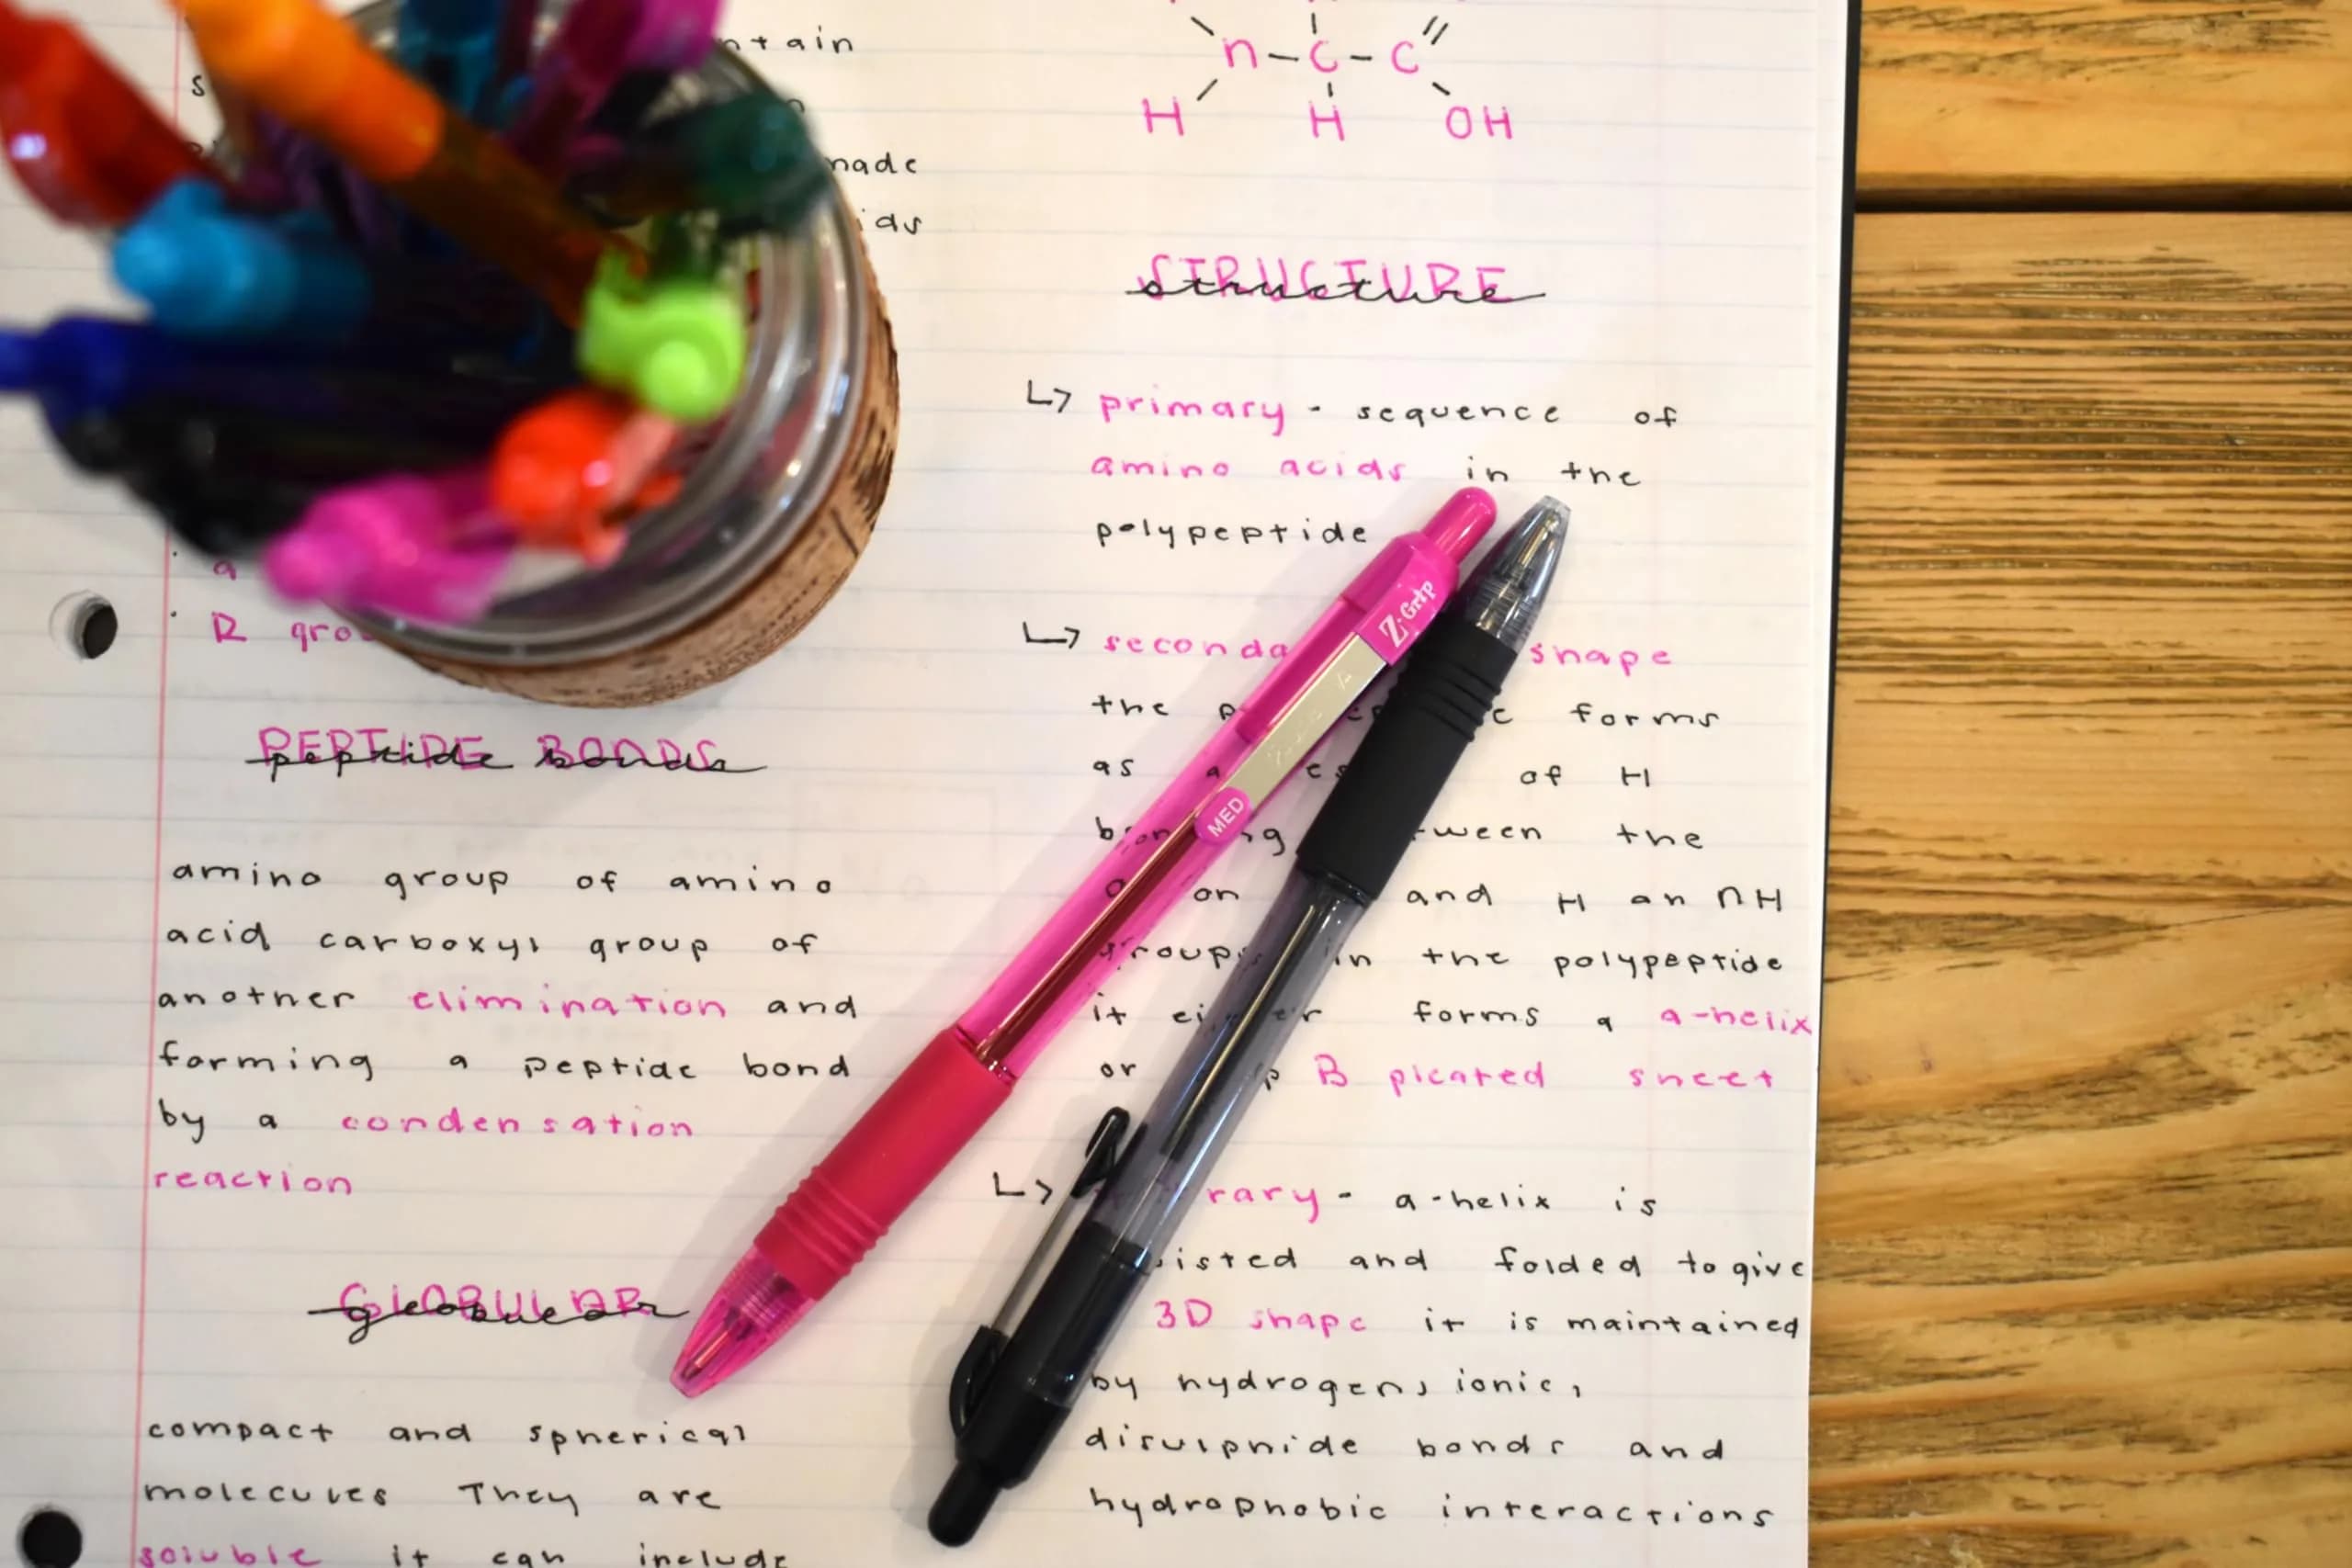 made
R
PEPTIDE BONDS
peptide bonds
amino group of amino
acid carboxyl group of
another elimination and
forming a peptide bond
by a condensation
reaction
GLOBULAR
globular
compact and spherical
molecules They are
soluble it can include
n-C-C
H H OH
STRUCTURE
structure
↳ primary - sequence of
amino acids in the
polypeptide
↳ shape
the forms
as a of H
the
on and H an nH
groups in the polypeptide
it either forms a a-helix
or B pleated sheet
↳ - a-helix is
and folded to give
3D shape it is maintained
by hydrogen, ionic,
disulphide bonds and
hydrophobic interactions
Z-Grip
MED